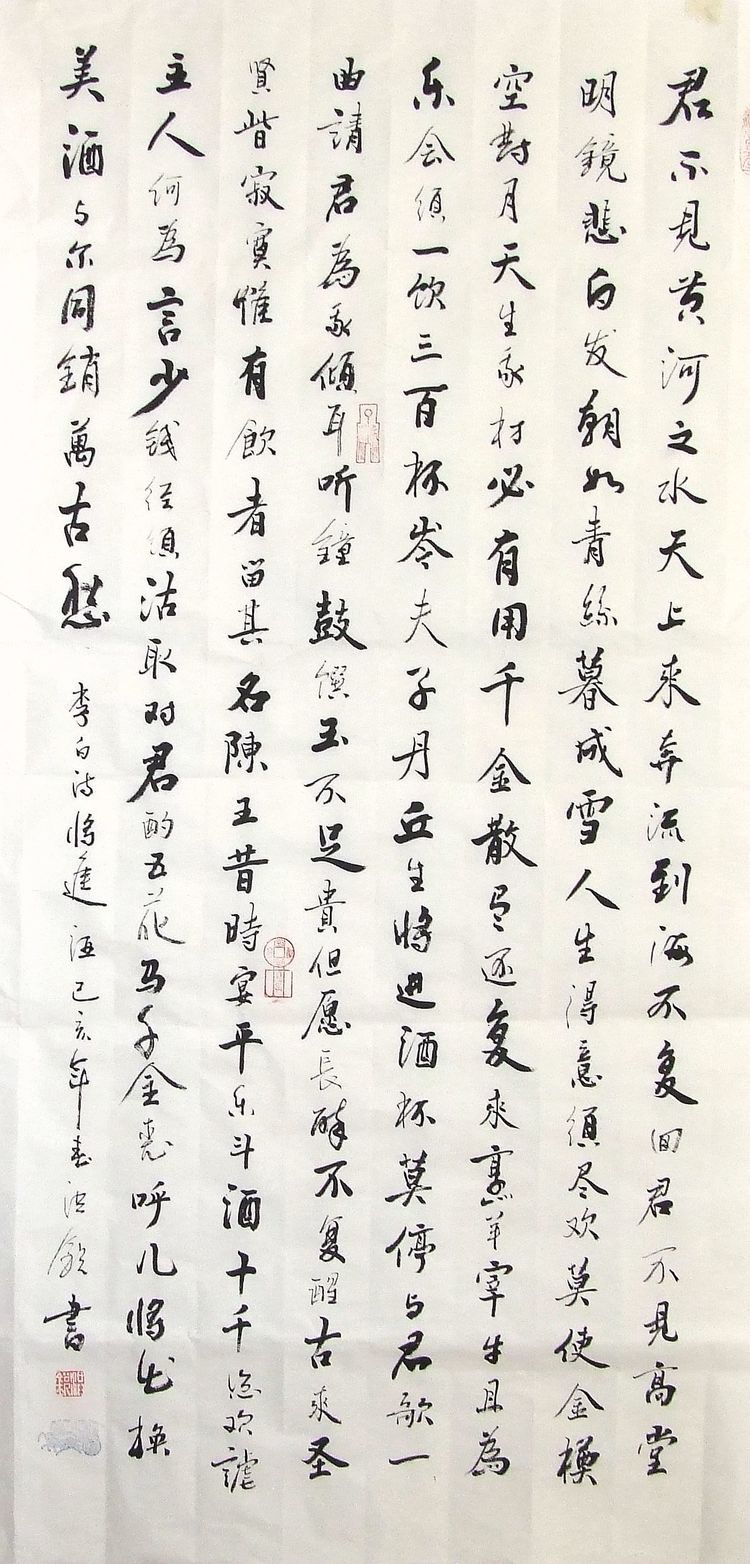 君不见黄河之水天上来奔流到海不复回君不见高堂
明鏡悲白发朝如青絲暮成雪人生得意須尽欢莫使金樽
空對月天生我材必有用千金散尽还复来烹羊宰牛且為
乐会須一饮三百杯岑夫子丹丘生将进酒杯莫停与君歌一
曲請君為我傾耳听鐘鼓饌玉不足貴但愿長醉不复醒古来圣
賢皆寂寞惟有飲者留其名陳王昔時宴平乐斗酒十千恣欢謔
主人何為言少钱径須沽取对君酌五花马千金裘呼儿将出换
美酒与尔同銷萬古愁
李白诗将進酒己亥年春
書